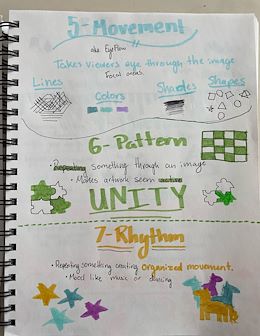 5-Movement
aka Eye Flow
Takes viewers eye through the image
Focal areas.
Lines
Colors
Shades
Shapes
6-Pattern
• Repeating something through an image
• Makes artwork seem active
UNITY
7-Rhythm
• Repeating something creating organized movement.
• Mood like music or dancing